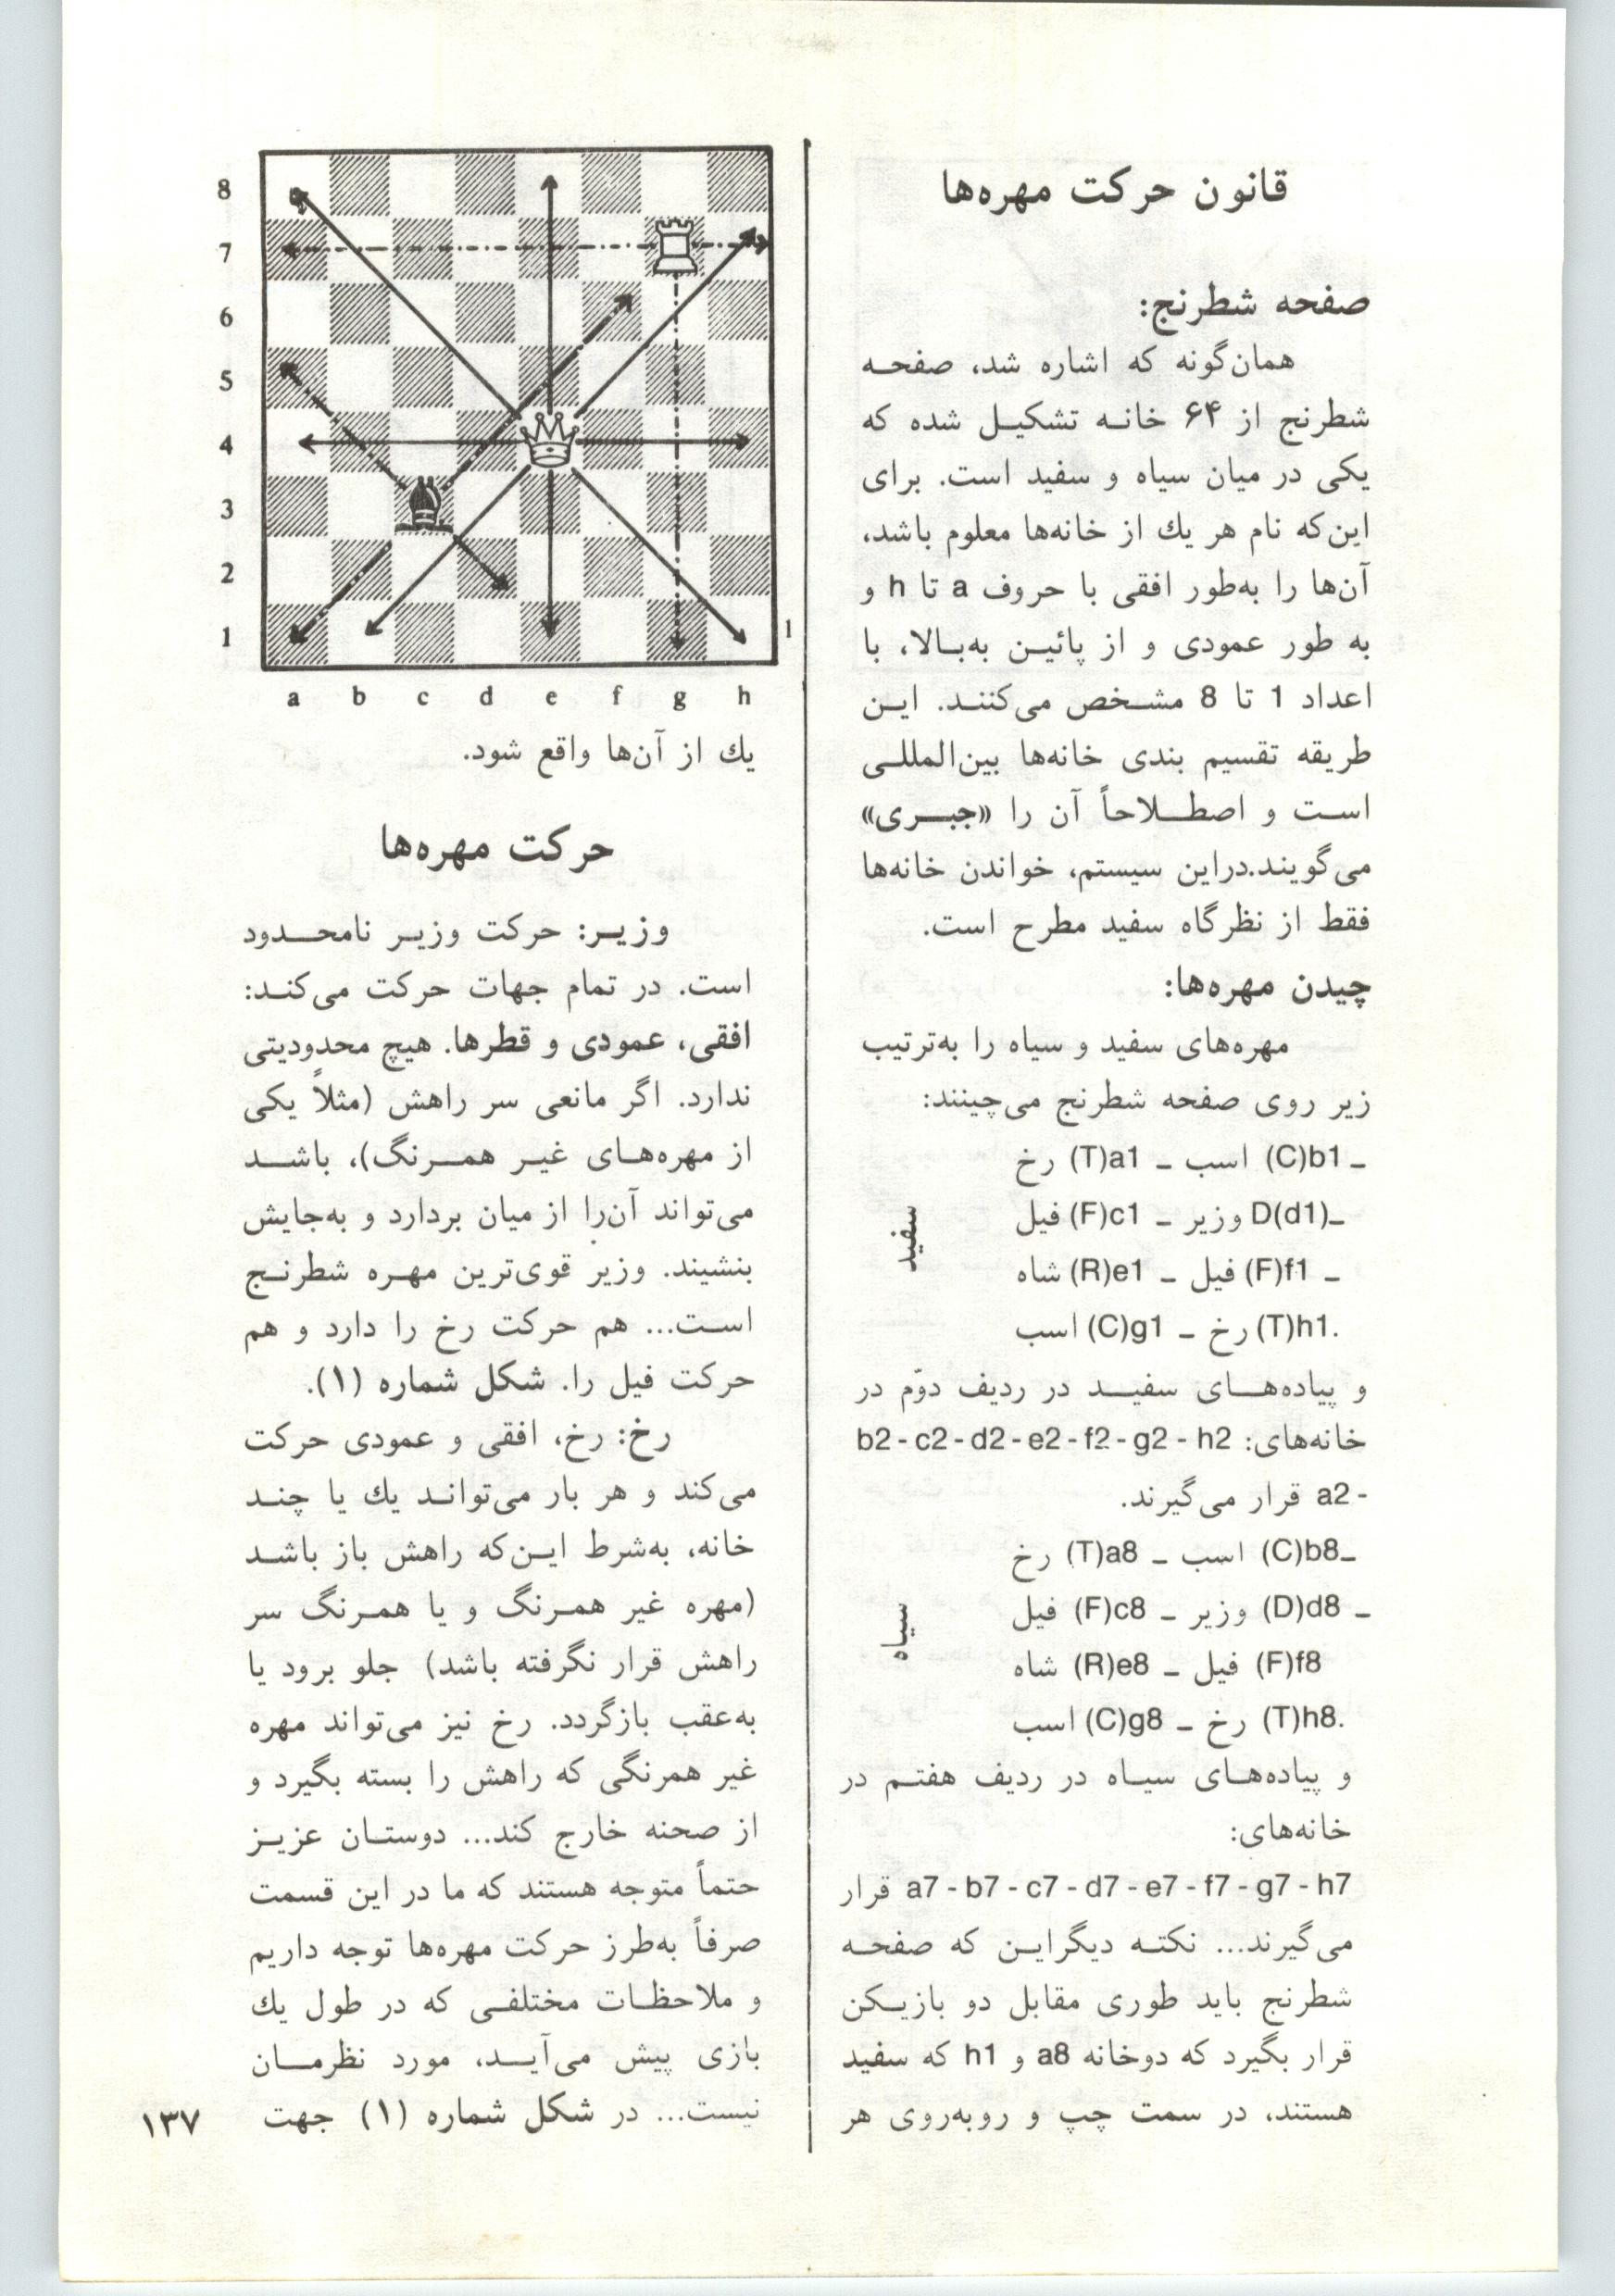 قانون حرکت مهره‌ها
صفحه شطرنج:
همان‌گونه که اشاره شد، صفحه
شطرنج از ۶۴ خانه تشکیل شده که
یکی در میان سیاه و سفید است. برای
این‌که نام هر یك از خانه‌ها معلوم باشد،
آن‌ها را به‌طور افقی با حروف a تا h و
به طور عمودی و از پائین به‌بالا، با
اعداد 1 تا 8 مشخص می‌کنند. این
طریقه تقسیم بندی خانه‌ها بین‌المللی
است و اصطلاحاً آن را «جبری»
می‌گویند.دراین سیستم، خواندن خانه‌ها
فقط از نظرگاه سفید مطرح است.
چیدن مهره‌ها:
مهره‌های سفید و سیاه را به‌ترتیب
زیر روی صفحه شطرنج می‌چینند:
رخ (T)a1 ـ اسب (C)b1 ـ
فیل (F)c1 ـ وزیر D(d1)ـ
شاه (R)e1 ـ فیل (F)f1 ـ
اسب (C)g1 ـ رخ (T)h1.
سفید
و پیاده‌های سفید در ردیف دوّم در
خانه‌های: b2 - c2 - d2 - e2 - f2 - g2 - h2
- a2 قرار می‌گیرند.
رخ (T)a8 ـ اسب (C)b8ـ
فیل (F)c8 ـ وزیر (D)d8 ـ
شاه (R)e8 ـ فیل (F)f8
اسب (C)g8 ـ رخ (T)h8.
سیاه
و پیاده‌های سیاه در ردیف هفتم در
خانه‌های:
a7 - b7 - c7 - d7 - e7 - f7 - g7 - h7 قرار
می‌گیرند... نکته دیگراین که صفحه
شطرنج باید طوری مقابل دو بازیکن
قرار بگیرد که دوخانه a8 و h1 که سفید
هستند، در سمت چپ و روبه‌روی هر
8
7
6
5
4
3
2
1
1
a b c d e f g h
یك از آن‌ها واقع شود.
حرکت مهره‌ها
وزیر: حرکت وزیر نامحدود
است. در تمام جهات حرکت می‌کند:
افقی، عمودی و قطرها. هیچ محدودیتی
ندارد. اگر مانعی سر راهش (مثلاً یکی
از مهره‌های غیر همرنگ)، باشد
می‌تواند آن‌را از میان بردارد و به‌جایش
بنشیند. وزیر قوی‌ترین مهره شطرنج
است... هم حرکت رخ را دارد و هم
حرکت فیل را. شکل شماره (۱).
رخ: رخ، افقی و عمودی حرکت
می‌کند و هر بار می‌تواند یك یا چند
خانه، به‌شرط این‌که راهش باز باشد
(مهره غیر همرنگ و یا همرنگ سر
راهش قرار نگرفته باشد) جلو برود یا
به‌عقب بازگردد. رخ نیز می‌تواند مهره
غیر همرنگی که راهش را بسته بگیرد و
از صحنه خارج کند... دوستان عزیز
حتماً متوجه هستند که ما در این قسمت
صرفاً به‌طرز حرکت مهره‌ها توجه داریم
و ملاحظات مختلفی که در طول یك
بازی پیش می‌آید، مورد نظرمان
نیست... در شکل شماره (۱) جهت
۱۳۷